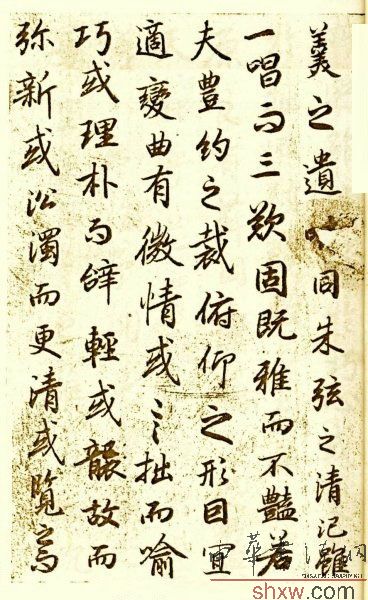 羹之遺同朱弦之清氾雖
一唱而三歎固既雅而不豔若
夫豐約之裁俯仰之形因宜
適變曲有微情或言拙而喻
巧或理朴而辞輕或襲故而
弥新或沿濁而更清或覽之
shxw.com